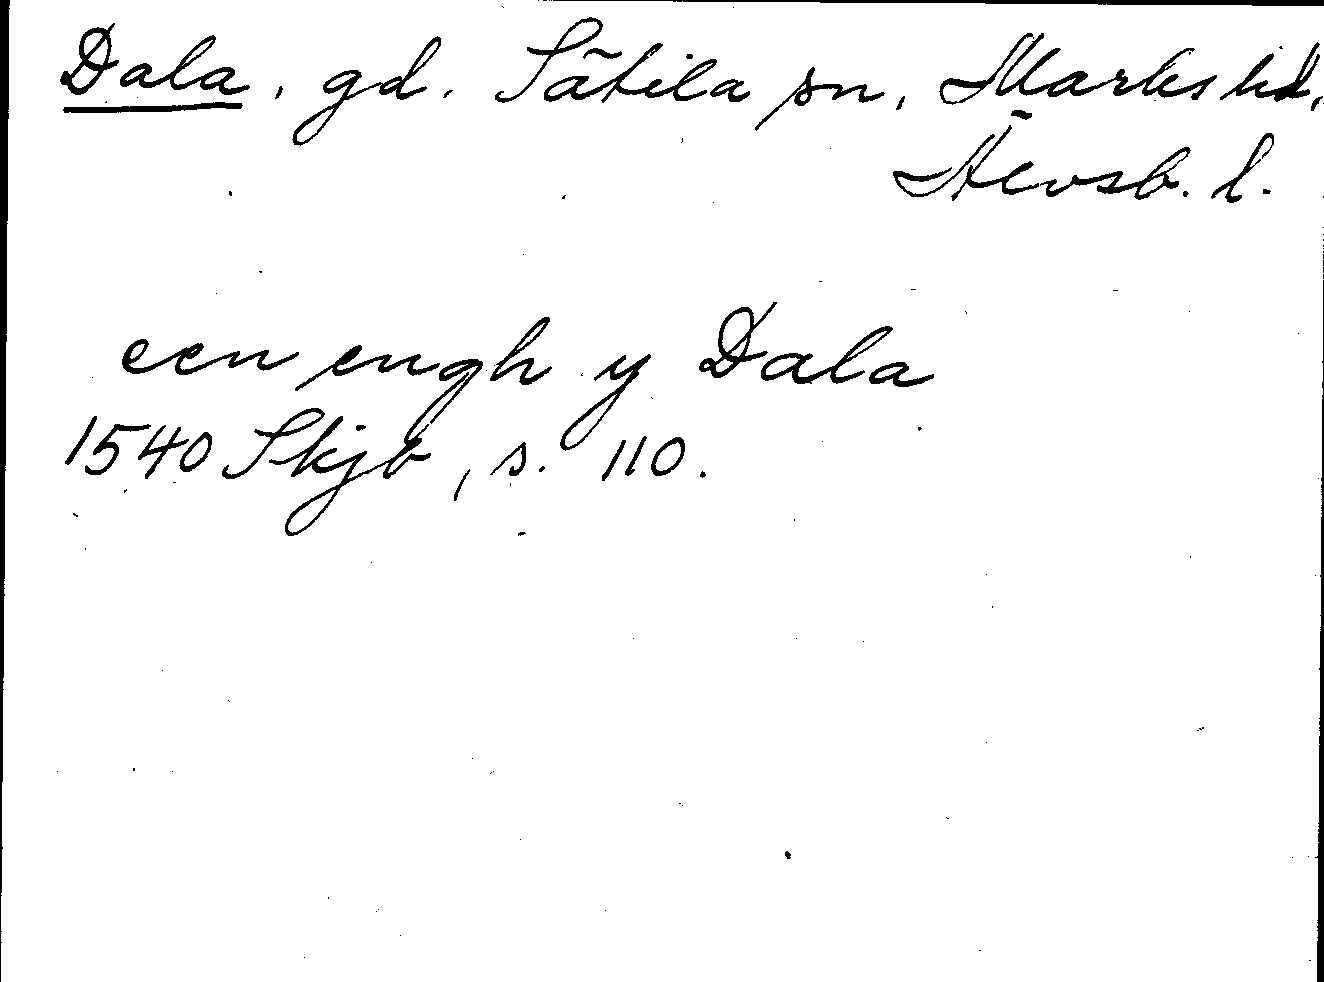 Dala, gd. Sätila sn, Marks hd,
Älvsb. l.
een engh y Dala
1540 Skjb, s. 110.